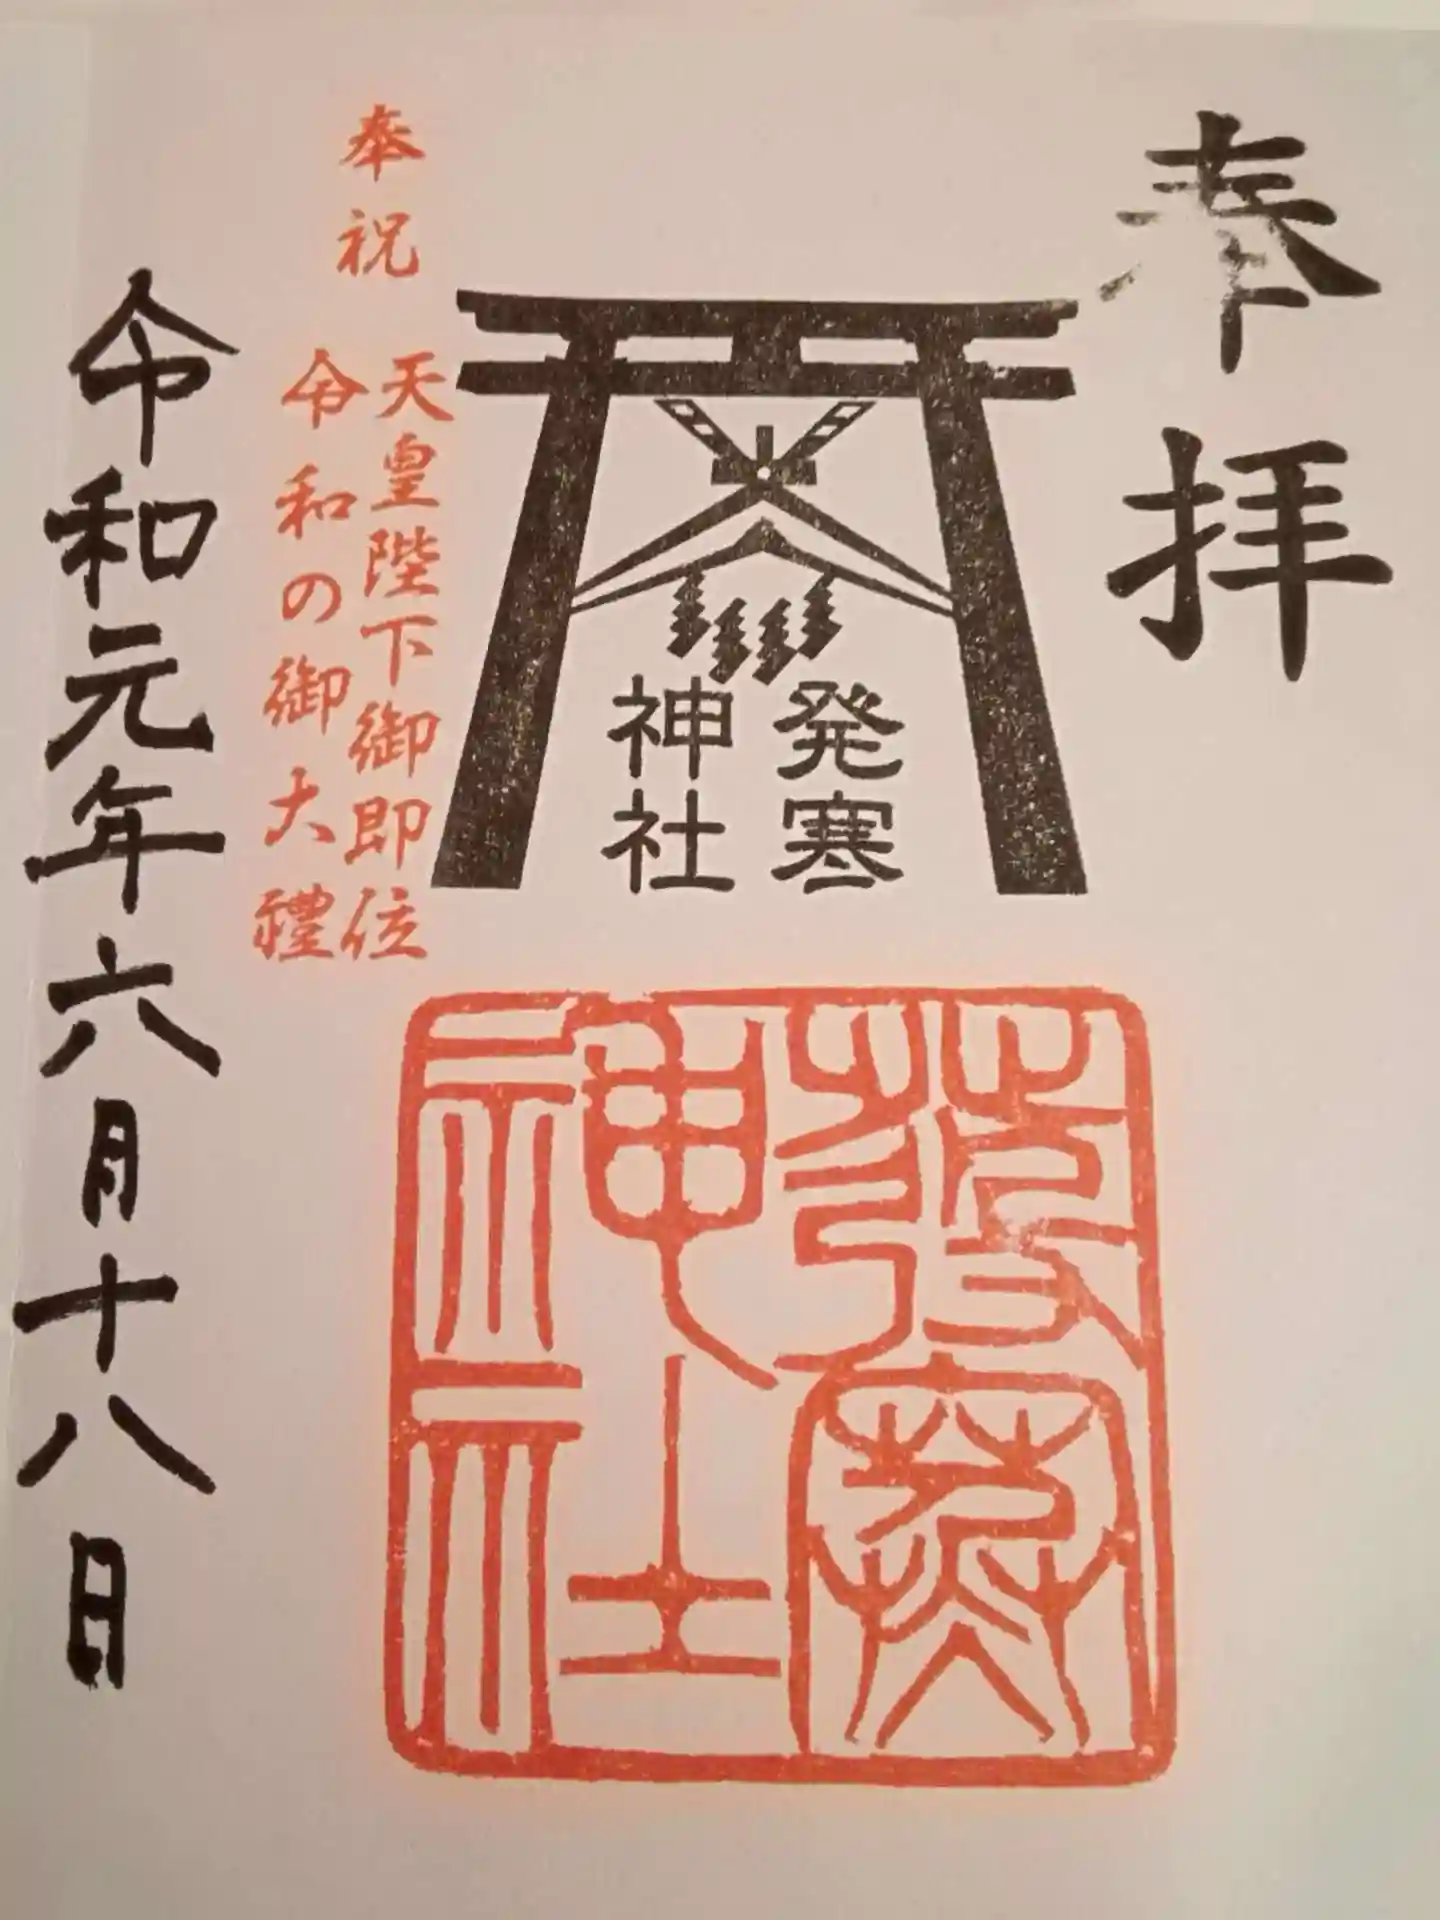 奉拝
発寒
神社
奉祝
天皇陛下御即位
令和の御大禮
令和元年六月十八日
發寒
神社